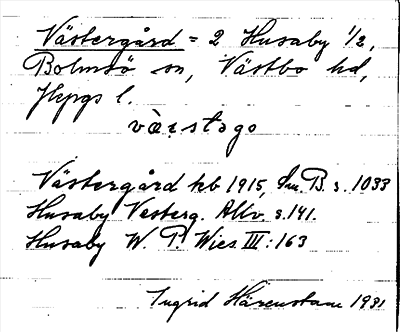 Västergård = 2 Husaby 1/2,
Bolmsö sn, Västbo hd,
Jkpgs l.
vàrstago
Västergård hb 1915, Sm. B. s. 1033
Husaby Vesterg. Allv. s. 141.
Husaby W. P. Wies III: 163
Ingrid Härenstam 1931